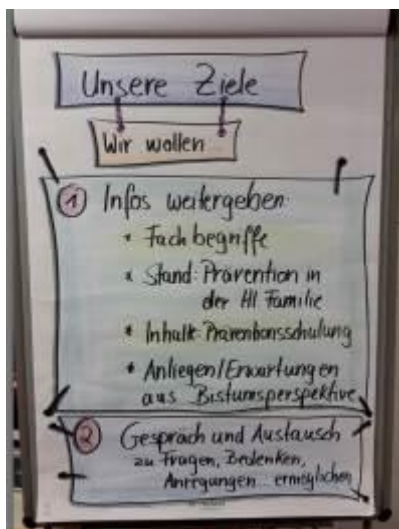 Unsere Ziele
Wir wollen...
1 Infos weitergeben:
* Fachbegriffe
* Stand: Prävention in
der Hl Familie
* Inhalt: Präventionsschulung
* Anliegen/Erwartungen
aus Bistumsperspektive
2 Gespräch und Austausch
zu Fragen, Bedenken,
Anregungen... ermöglichen